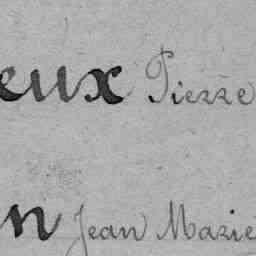 eux Pierre
n Jean Marie